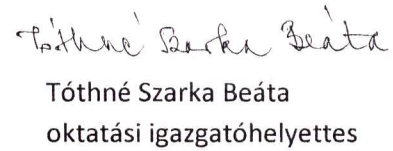 Tóthné Szarka Beáta
Tóthné Szarka Beáta
oktatási igazgatóhelyettes